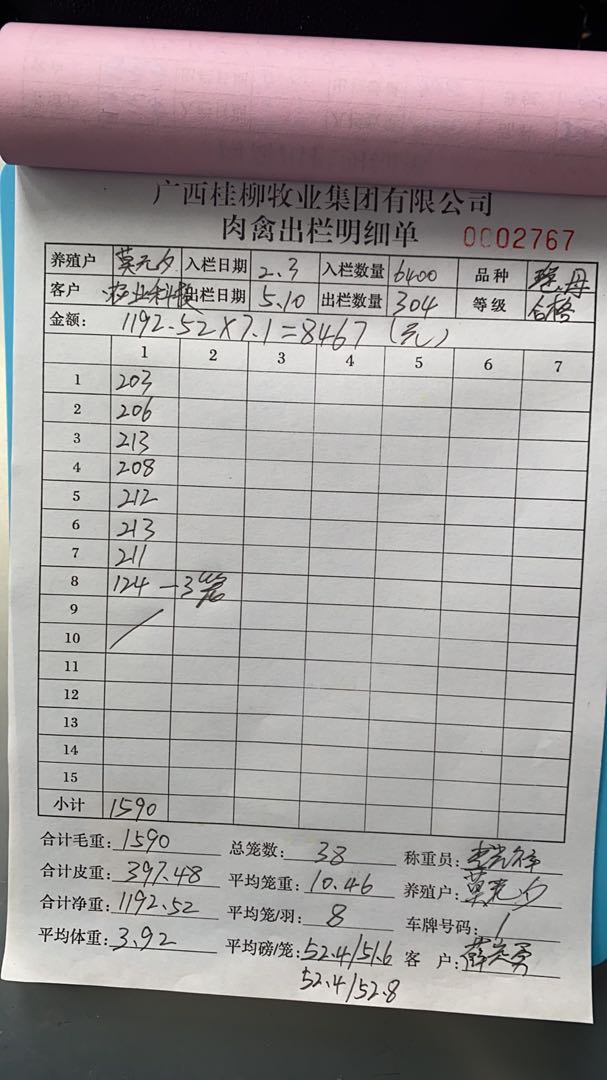 广西桂柳牧业集团有限公司
肉禽出栏明细单 0002767
养殖户 莫元夕 入栏日期 2.3 入栏数量 6400 品种
客户 出栏日期 5.10 出栏数量 304 等级 合格
金额: 1192.52×7.1=8467(元)
1 2 3 4 5 6 7
1 203
2 206
3 213
4 208
5 212
6 213
7 211
8 124 —3笼
9
10
11
12
13
14
15
小计 1590
合计毛重: 1590 总笼数: 38 称重员:
合计皮重: 397.48 平均笼重: 10.46 养殖户: 莫元夕
合计净重: 1192.52 平均笼/羽: 8 车牌号码: 1
平均体重: 3.92 平均磅/笼: 52.4/51.6 客 户:
52.4/52.8